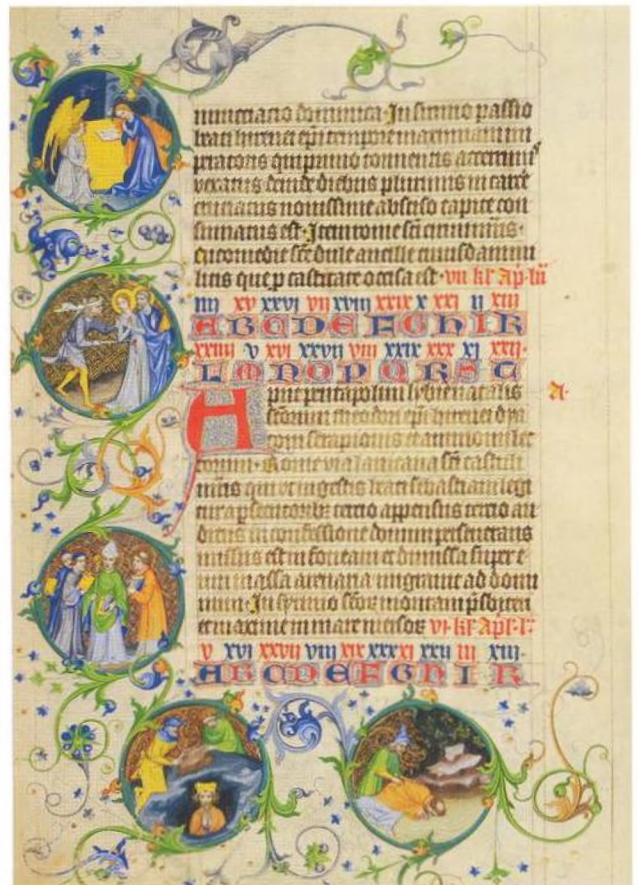 nunciatio dominica. In sirmio passio
beati hirenei epi tempore maximiani im
peratoris qui primo tormentis acerrimis
vexatus deinde diebus plurimis in carcere
cruciatus novissime absciso capite con
sumatus est. Item rome sci
sce dule ancille cuiusdam mi
litis que p castitate occisa est. vii kl Ap
iiij xv xxvi vii xviii xxix x xxi ij xiii
A B C D E F G H I K
xxiiij v xvi xxvii viii xxix xxx xi xxij.
L M N O P Q R S T
Aput pentapolim lybie natalis
scorum theodori epi hirenei dya
coni serapionis et ammonii lec
torum. Rome via lavicana sci castuli
mris qui beati sebastiani
tercio appensus tercio au
ditus in confessione domini perseverans
missus est in foveam et dimissa super e
um massa arenaria migravit ad domi
num. In syrmio scor montani psbyteri
et maxime in mare mersor vi kl Apl
v xvi xxvii viii xix xxx xi xxii iij xiii.
A B C D E F G H I K